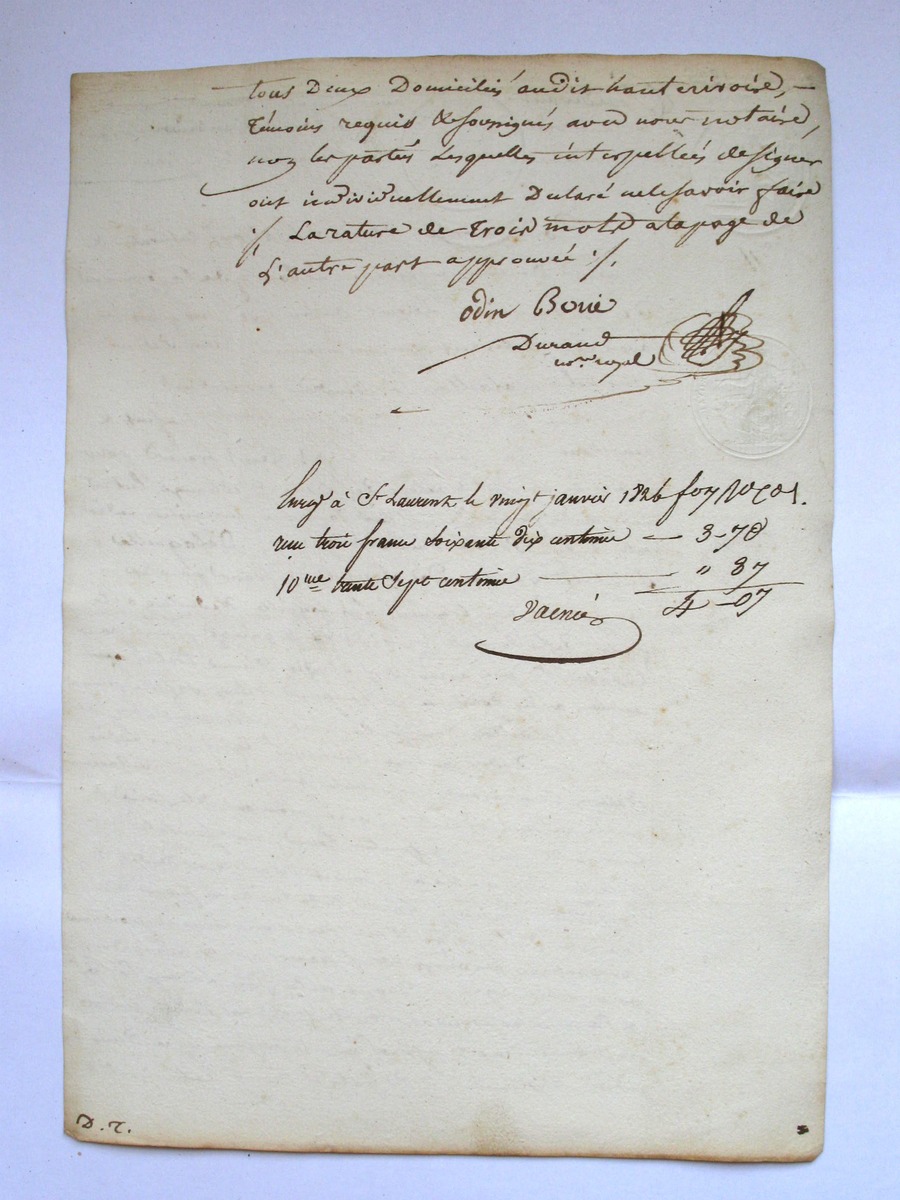 tous Deux Domiciliés audit hauterivoire, —
témoins requis & soussignés avec nous notaire,
non les parties Lesquelles interpellées de signer
ont individuellement Déclaré ne le savoir faire
./. La rature de trois mots a la page de
L'autre part approuvée ./.
odin Borie
Durand
nore royal
Enreg à St Laurent le vingt janvier 1826 fo
reçu trois francs soixante dix centimes — 3-70
10me trente sept centimes — " 37
4-07
D. T.